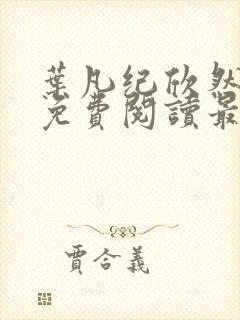 葉凡纪欣然
免費閱讀最
賈合義